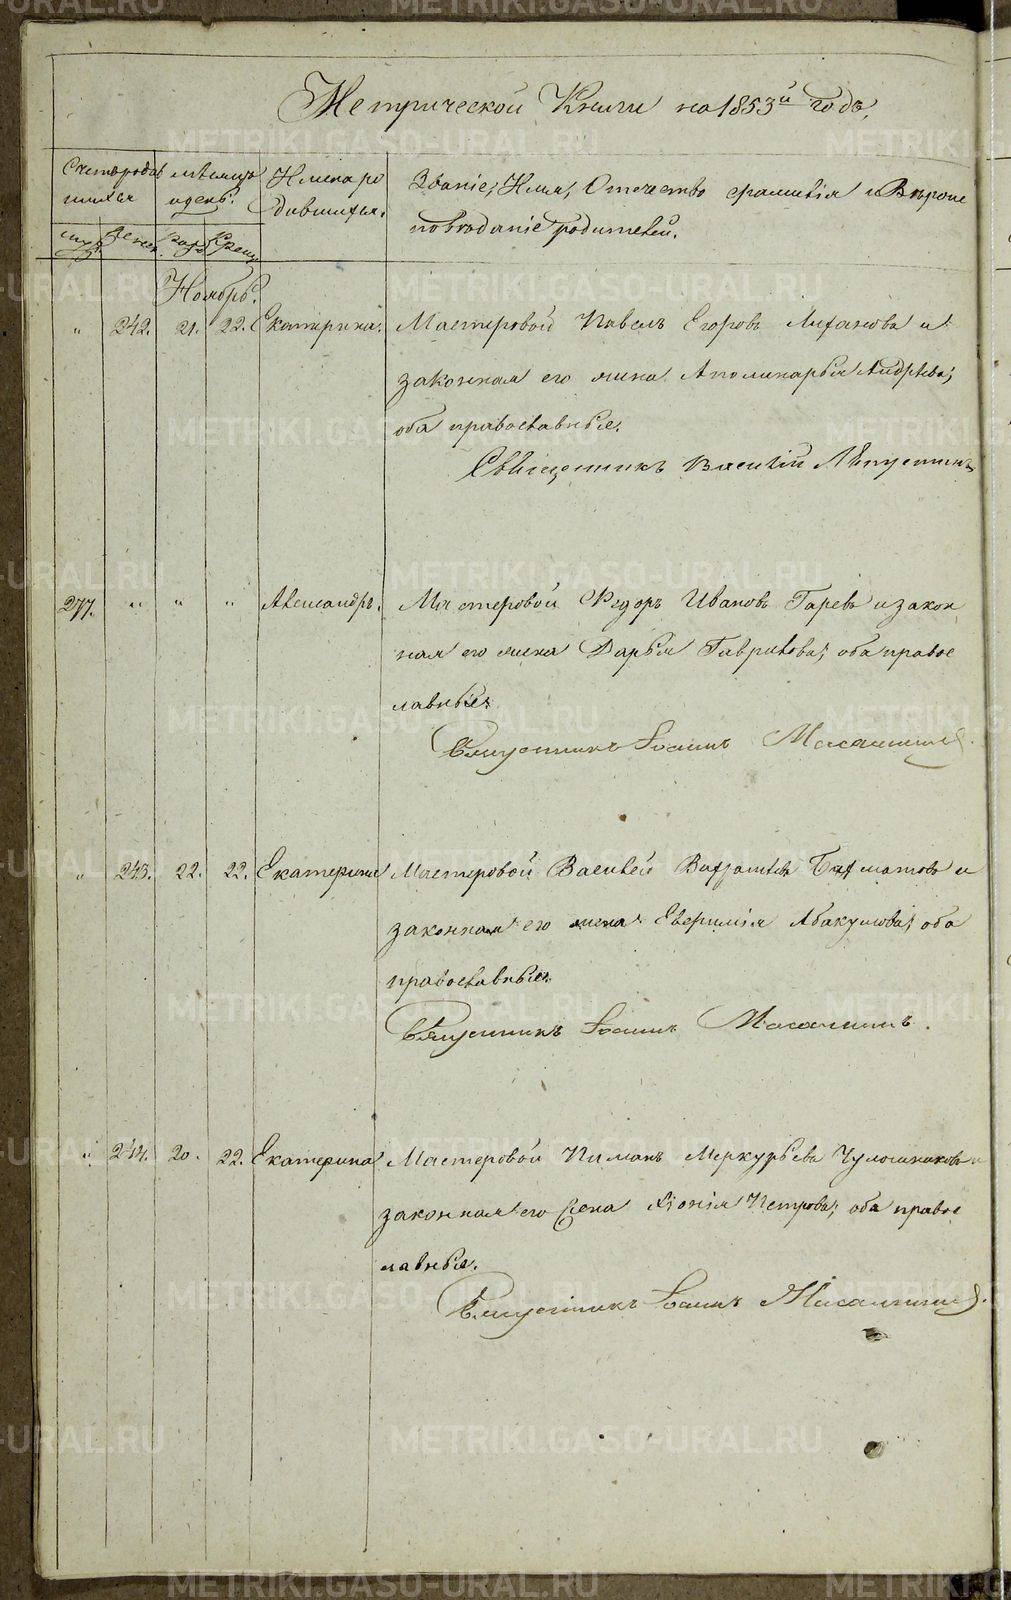 Метрической Книги на 1853й годъ,
Счетъ родив
шихся
мѣсяцъ
и день.
Имена ро
дившихся.
Званіе, Имя, Отечество фамилія и Вѣроис
повѣданіе родителей.
муж. женс. рож. крещ.
Ноябрь.
" 242. 21. 22. Екатерина. Мастеровой Павелъ Егоровъ и
законная его жена Аполинарья Андрѣева,
оба православные.
Священникъ Василій
277. " " " Александръ. Мастеровой Федоръ Ивановъ Гаревъ и закон
ная его жена Дарья Гаврилова; оба правос
лавные.
Священникъ Іоаннъ
" 243. 22. 22. Екатерина Мастеровой Василей и
законная его жена Евфимія Абакумова; оба
православные.
Священникъ Іоаннъ
" 244. 20. 22. Екатерина Мастеровой Пиманъ Меркурьевъ Чулошниковъ и
законная его жена Хіонія Петрова; оба правос
лавные.
Священникъ Іоаннъ
METRIKI.GASO-URAL.RU